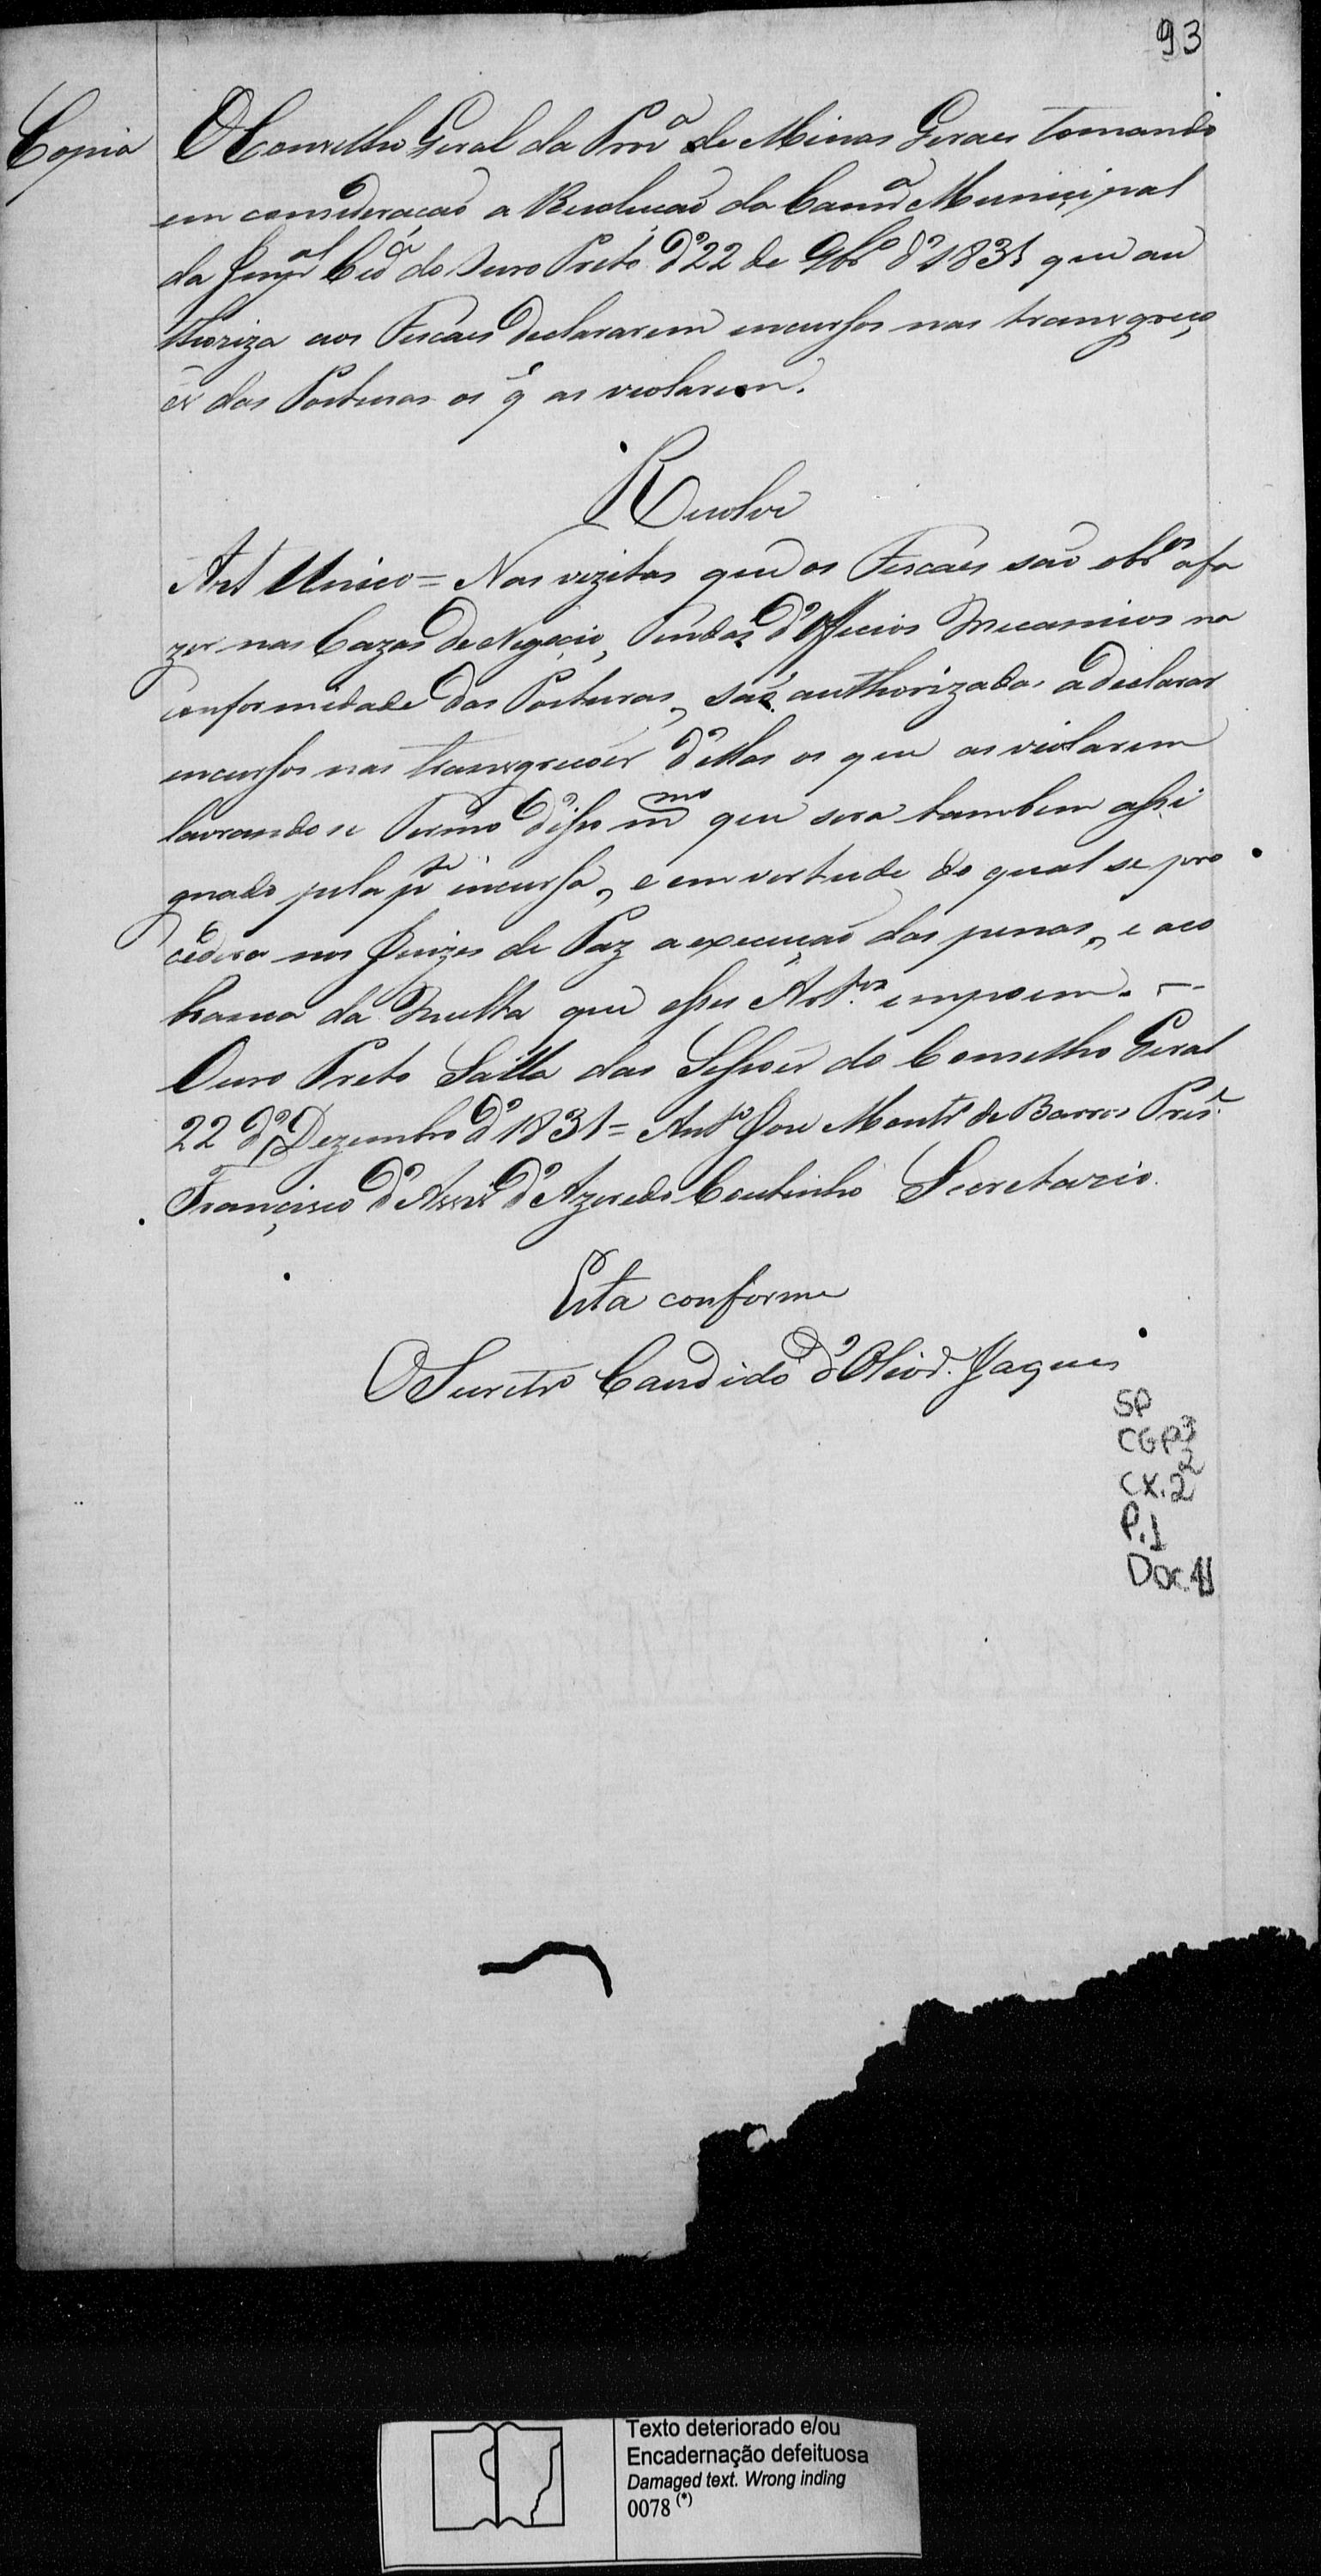 93
Copia
O Conselho Geral da Provª de Minas Geraes tomando
em consideração a Resolução da Camrª Municipal
da Impal Cidª do Ouro Preto d'22 de 9brº d'1831 que au
thoriza aos Fiscaes declararem incursos nas transgreço
es das Posturas os q̃ as violarem.
Resolve
Art Unico = Nas vizitas que os Fiscaes são obrºs a fa
zer nas Cazas de Negocio, Tendas d'Officios Mecanicos na
conformidade das Posturas, são authorizados a declarar
incursos nas transgreçoes d'ellas os que as violarem
lavrando se Termo d'isso mmo que sera tambem assi
gnado pela pte incursa, e em vertude do qual se pro
cederá nos Juizes de Paz a execução das penas, e a co
brança da Multa que esses Artºs impoem. —
Ouro Preto Salla das Sessoes do Conselho Geral
22 d'Dezembro d'1831 = Antº Jose Montrº de Barros Prese
Francisco d'Assis d'Azeredo Coutinho Secretario.
Esta conforme
O Secretrº Candido d'Olivrª Jaques
SP
CGP3
CX.2
2
P.1
Doc.41
Texto deteriorado e/ou
Encadernação defeituosa
Damaged text. Wrong inding
0078 (*)